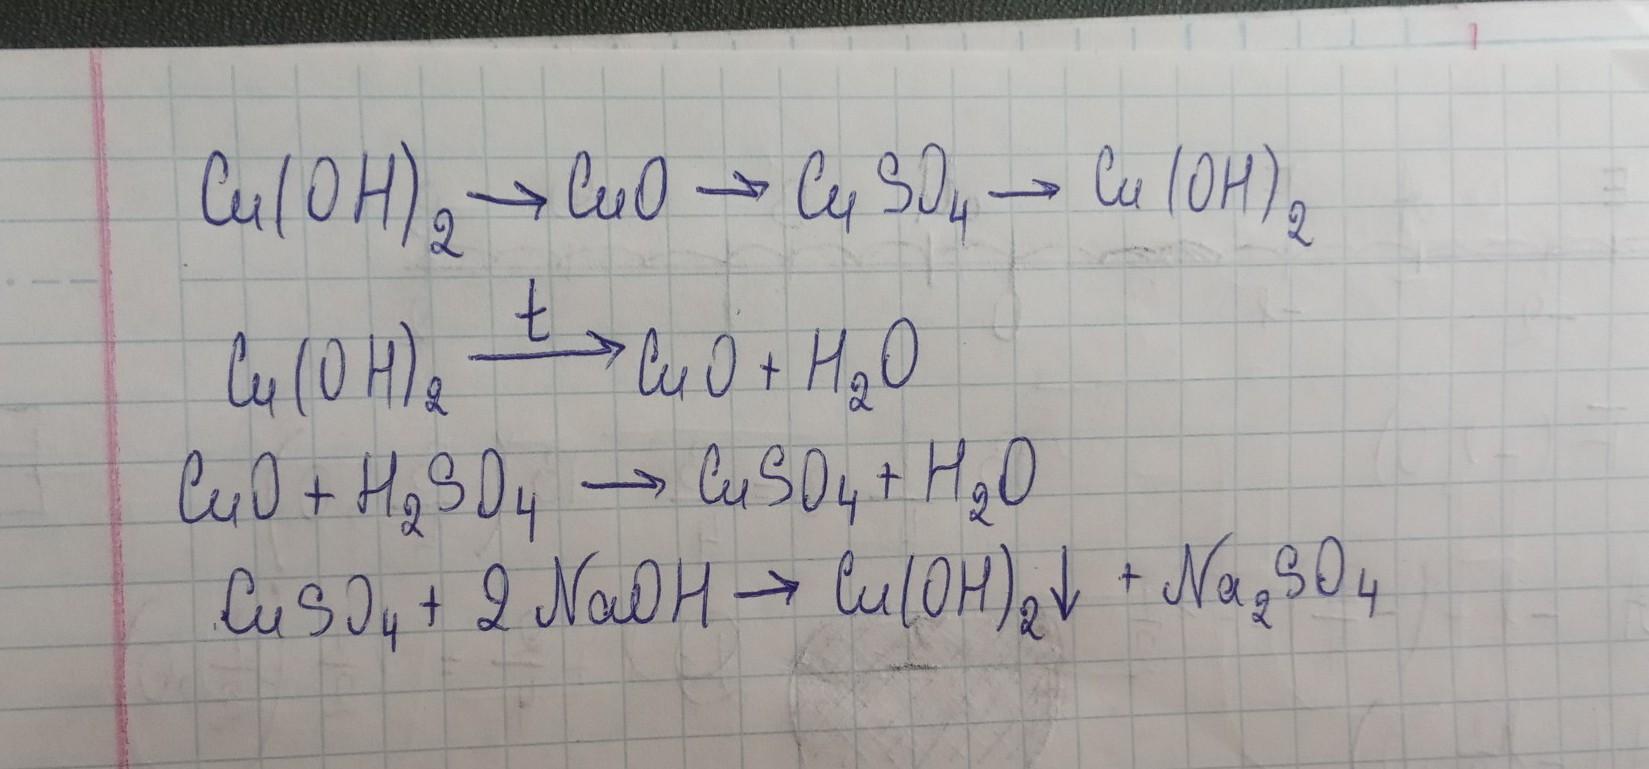 Cu(OH)₂ → CuO → CuSO₄ → Cu(OH)₂
Cu(OH)₂ —t→ CuO + H₂O
CuO + H₂SO₄ → CuSO₄ + H₂O
CuSO₄ + 2 NaOH → Cu(OH)₂↓ + Na₂SO₄